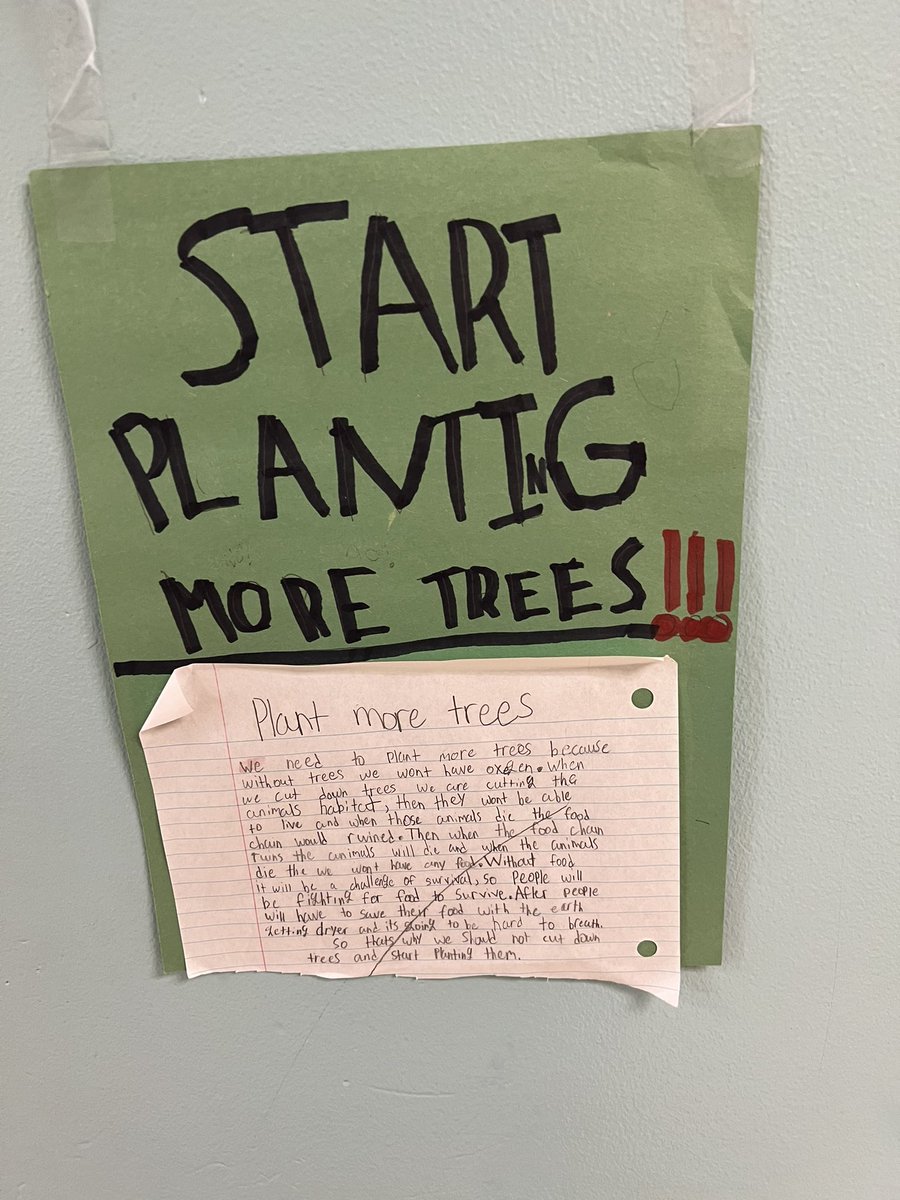 START
PLANTING
MORE TREES!!!
Plant more trees
We need to plant more trees because
without trees we wont have oxgen. When
we cut down trees we are cutting the
animals habitat, then they wont be able
to live and when those animals die the food
chain would ruined. Then when the food chain
ruins the animals will die and when the animals
die the we won't have any food. Without food
it will be a challenge of survival, so People will
be fighting for food to survive. After people
will have to save their food with the earth
getting dryer and its going to be hard to breath.
So thats why we should not cut down
trees and start planting them.